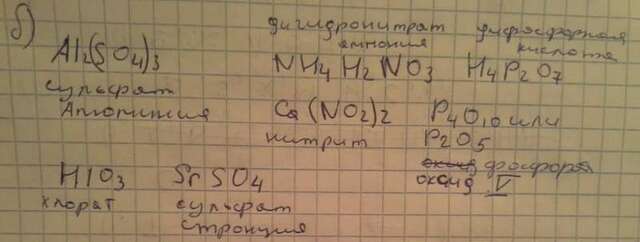 б)
Al2(SO4)3
сульфат
Алюминия
дигидронитрат
аммония
NH4 H2 NO3
дифосфорная
кислота
H4P2O7
Ca(NO2)2
нитрит
P4O10 или
P2O5
оксид фосфора
V
HIO3
хлорат
SrSO4
сульфат
стронция